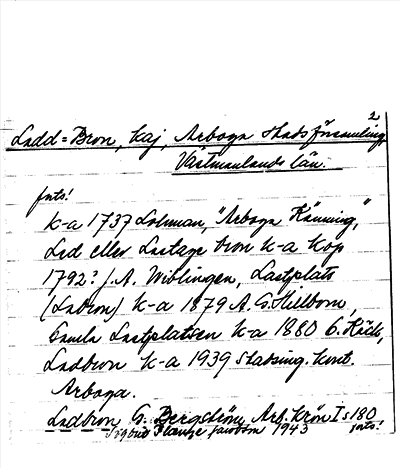 2
Ladd=Bron, kaj, Arboga stadsförsamling,
Västmanlands län.
forts!
k-a 1737 Lohman, "Arboga Känning,"
Lad eller Lastage bron k-a kop
1792? J.A. Wiblingen, Lastplats
(Labron) k-a 1879 A.G. Hillbom,
Gamla Lastplatsen k-a 1880 C. Räck,
Ladbron k-a 1939 stadsing. kont.
Arboga.
Ladbron, G. Bergström, Arb. Krön I s 180
1943 forts!